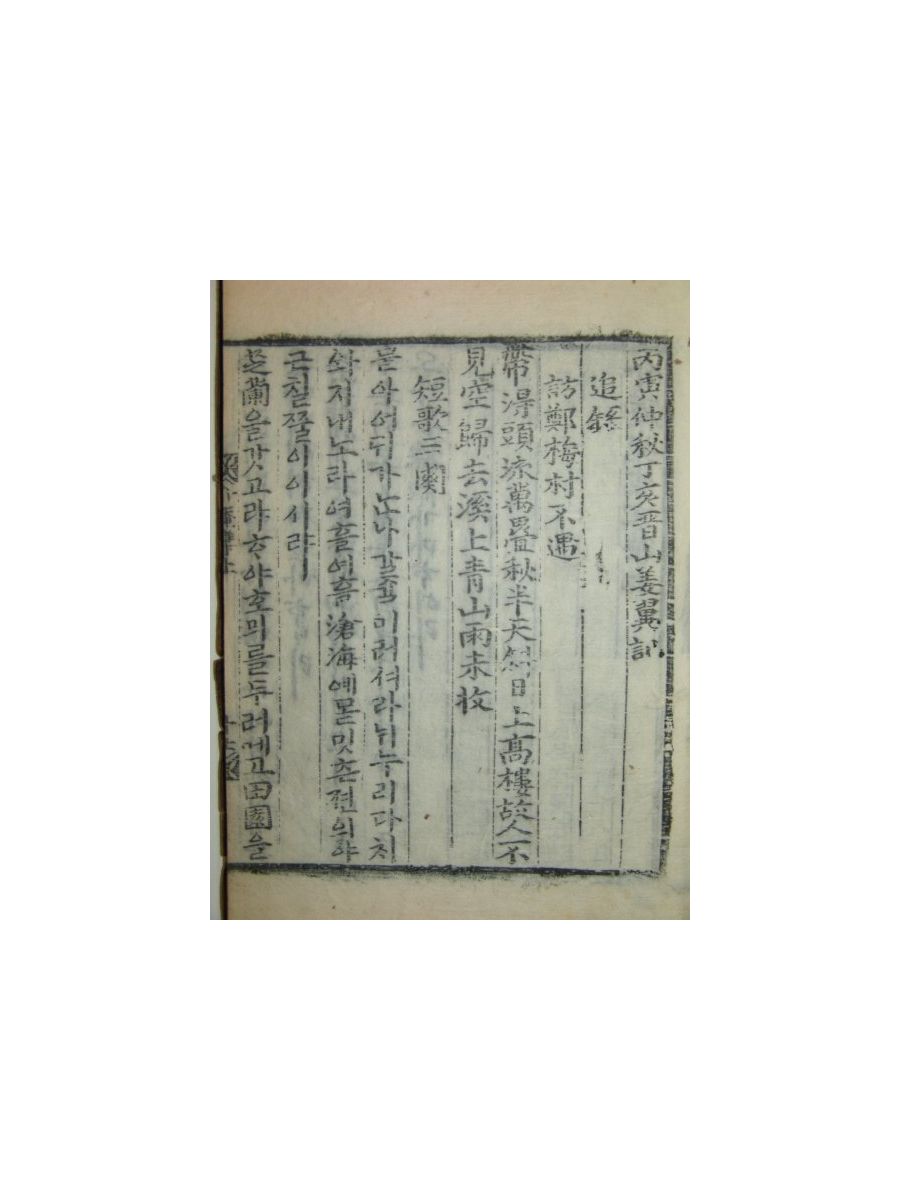 丙寅仲秋丁亥晋山姜翼記
追錄
訪鄭梅村不遇
帶得頭流萬疊秋半天斜日上高樓故人不
見空歸去溪上靑山雨未收
短歌三闋
믈아어듸가ᄂᆞ나갈길미러셔라뉘누리다치
와지내노라여흘여흘滄海예몯밋츤젼의야
근칠쭐이이시랴
芝蘭을갓고랴ᄒᆞ야호믜를두러메고田園을